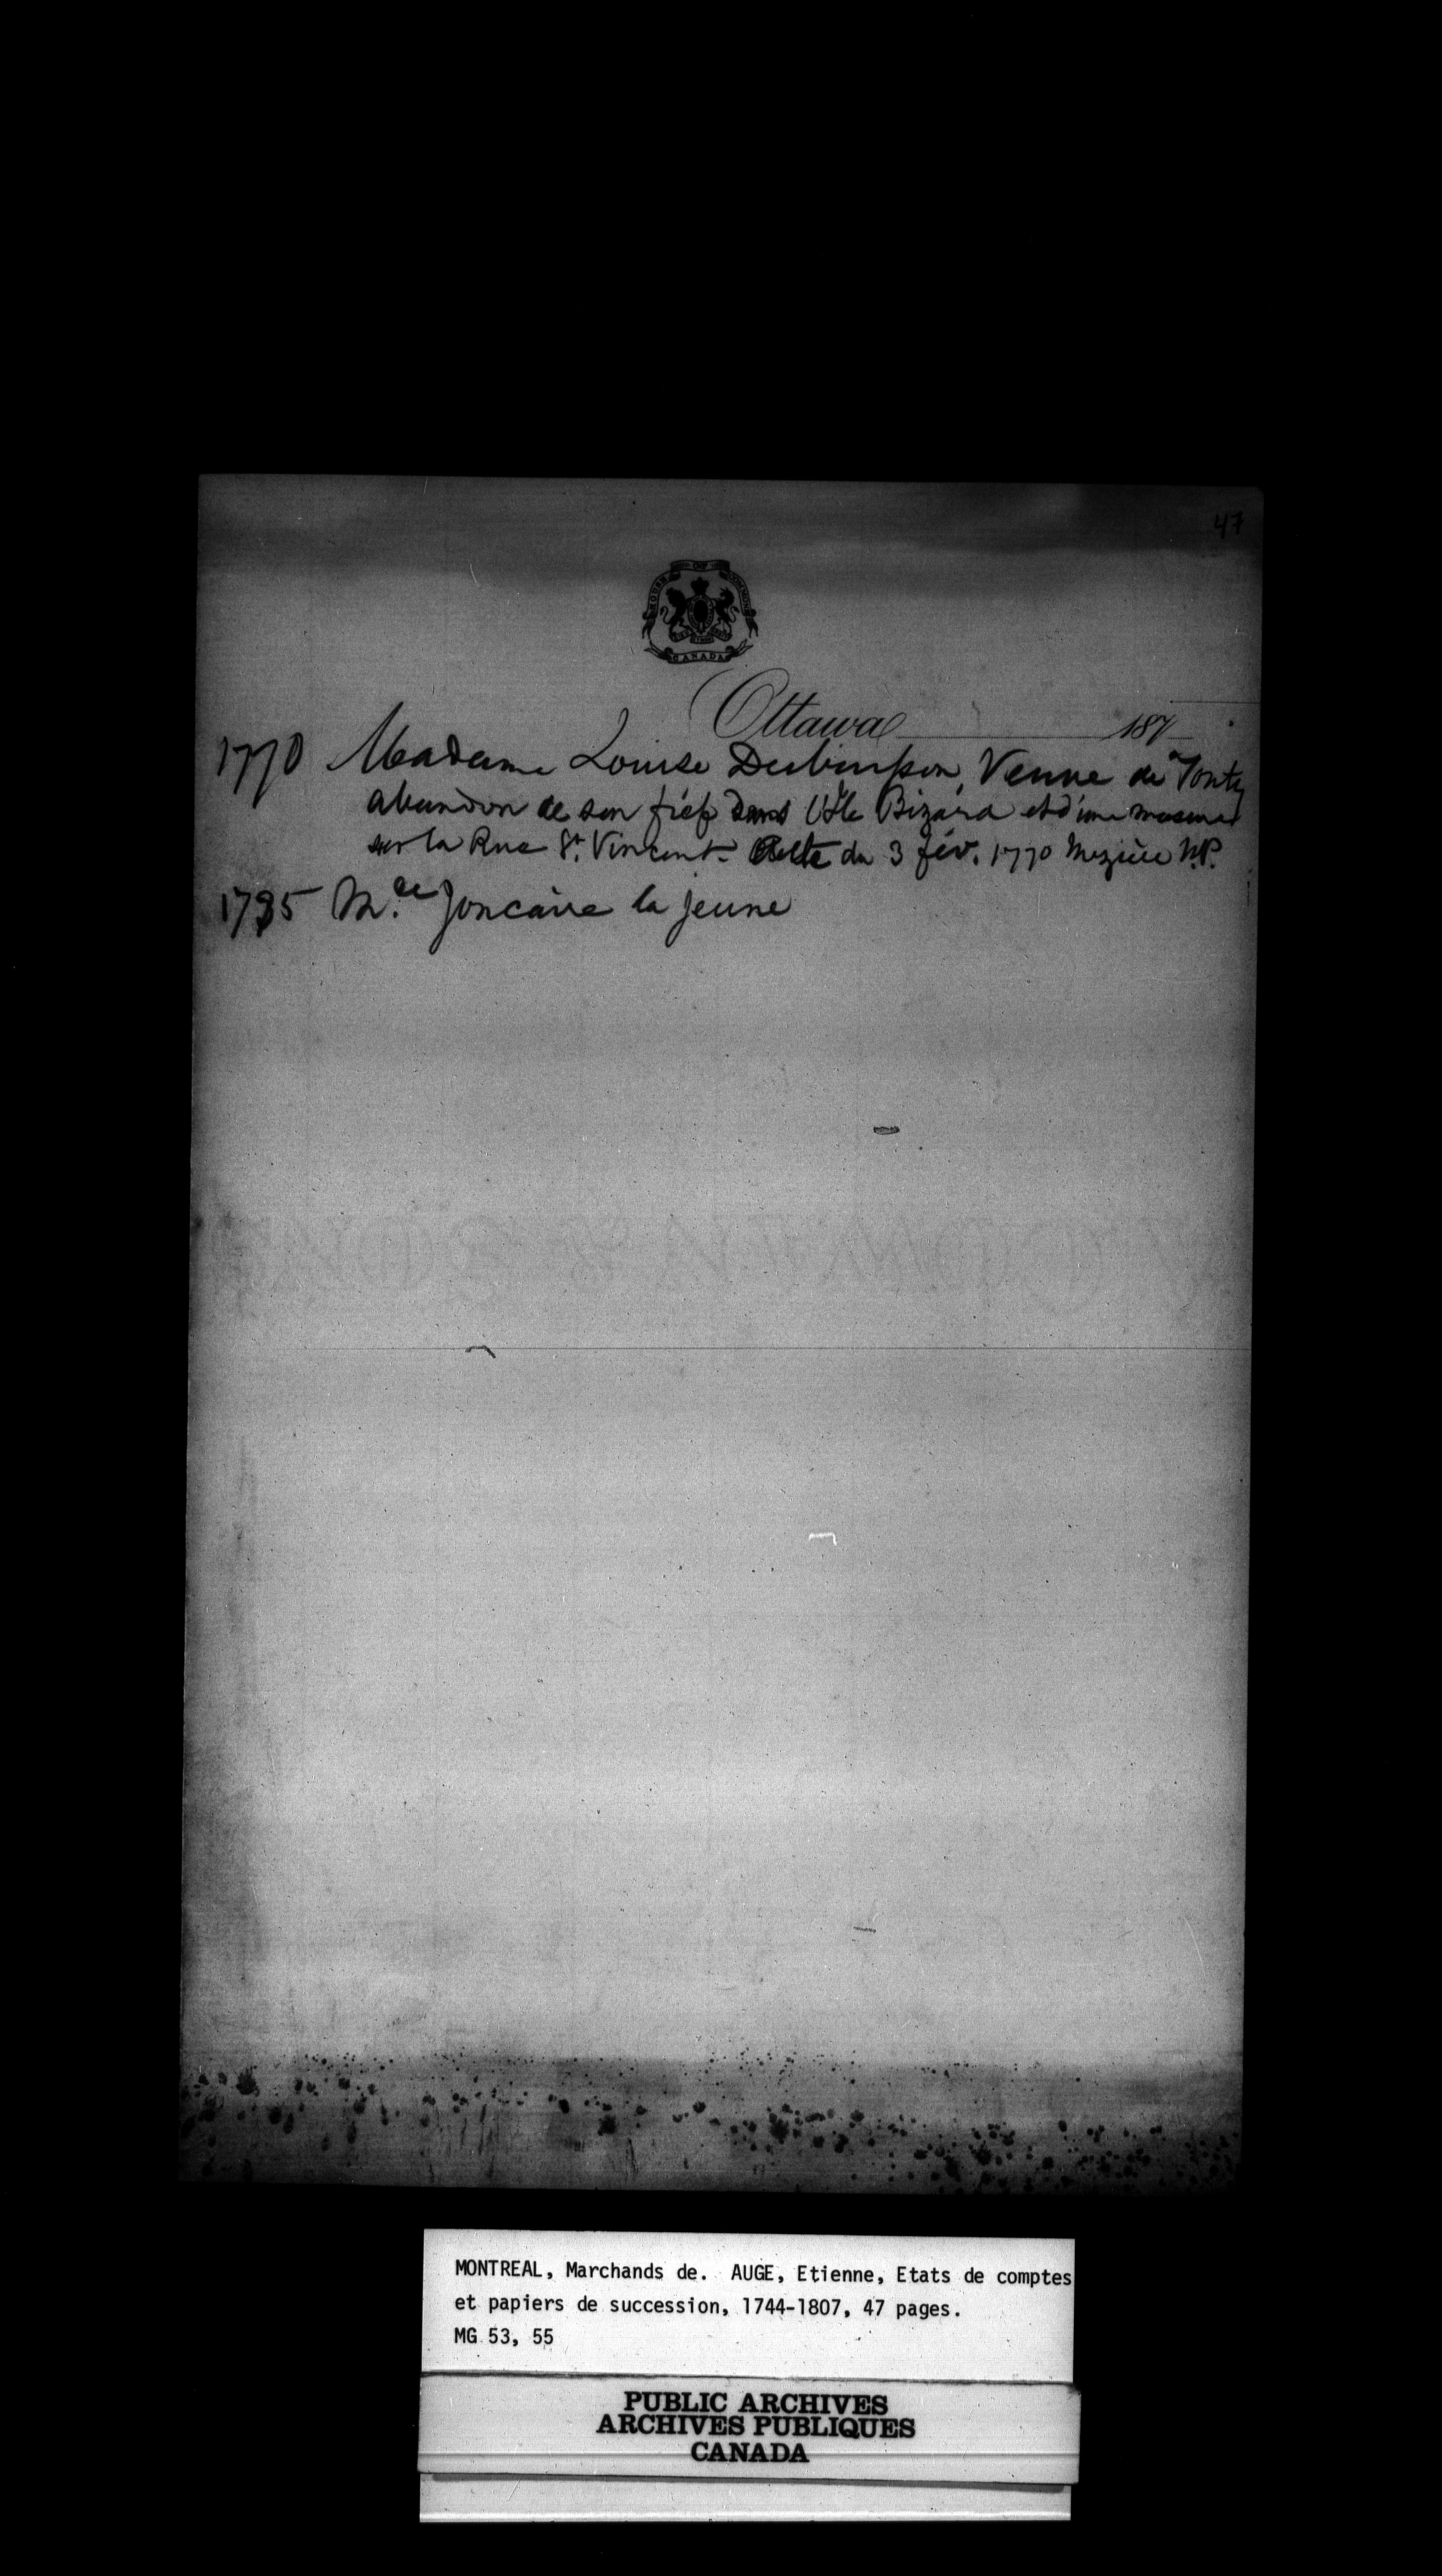 47
HOUSE OF COMMONS
CANADA
Ottawa 187
1770 Madame Louise Dubuisson, Veuve de Tonty
abandon de son fief dans l'Isle Bizard et d'une masure
sur la Rue St. Vincent. Acte du 3 fév. 1770 Mezière N.P.
1775 M.de Joncaire la jeune
MONTREAL, Marchands de. AUGE, Etienne, Etats de comptes
et papiers de succession, 1744-1807, 47 pages.
MG 53, 55
PUBLIC ARCHIVES
ARCHIVES PUBLIQUES
CANADA